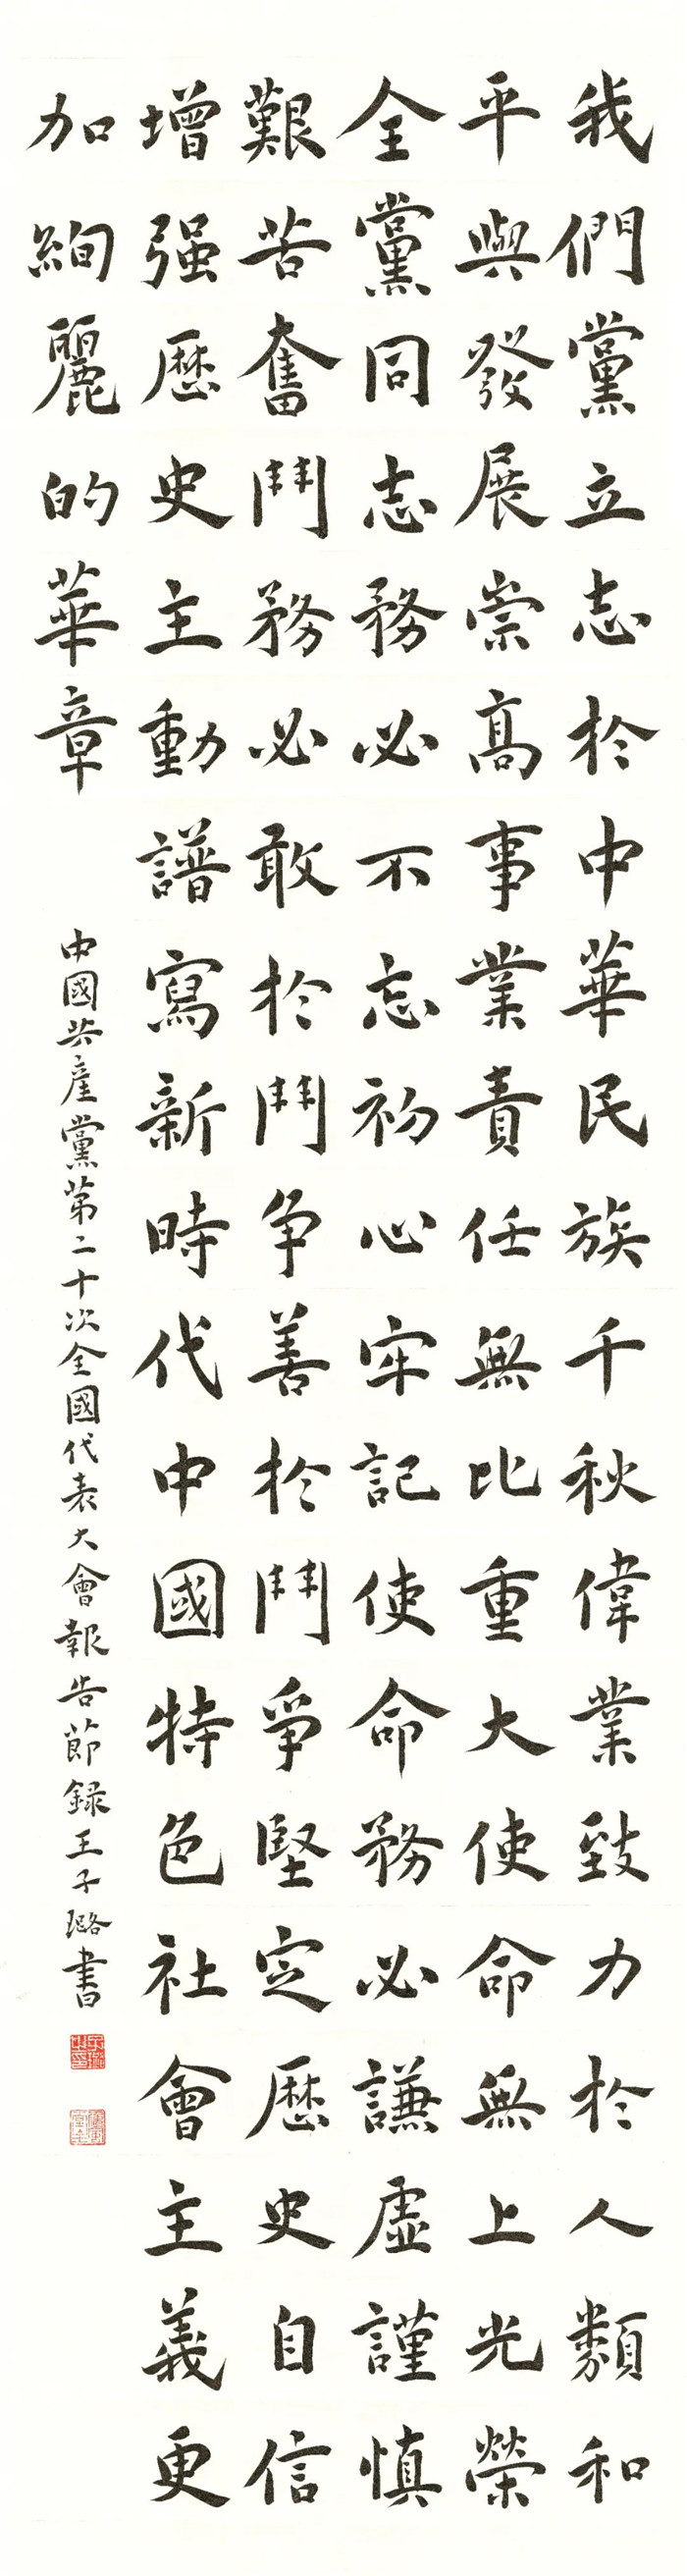 我們黨立志於中華民族千秋偉業致力於人類和
平與發展崇高事業責任無比重大使命無上光榮
全黨同志務必不忘初心牢記使命務必謙虛謹慎
艱苦奮鬥務必敢於鬥争善於鬥爭堅定歷史自信
增强歷史主動譜寫新時代中國特色社會主義更
加絢麗的華章
中國共產黨第二十次全國代表大會報告節録王子璐書